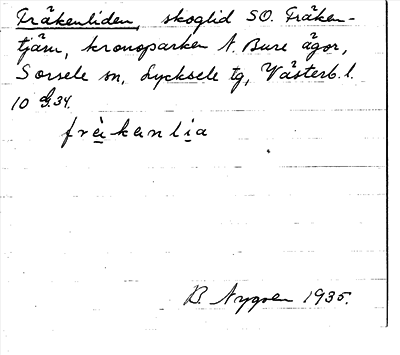 Fräkenliden, skoglid SO. Fräken-
tjärn, kronoparken N. Bure ägor,
Sorsele sn, Lycksele tg, Västerb. l.
10 G. 34.
fräkenlia
B. Nygren 1935.